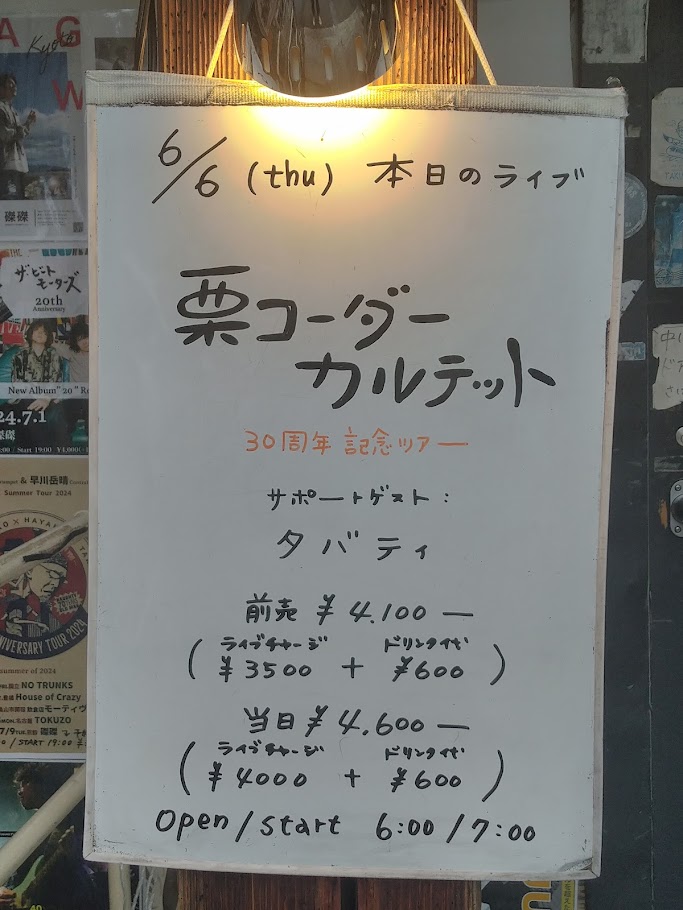 6/6 (thu) 本日のライブ
栗コーダー
カルテット
30周年 記念ツアー
サポートゲスト:
タバティ
前売 ¥4.100―
ライブチャージ ドリンク代
(¥3500 + ¥600)
当日 ¥4.600―
ライブチャージ ドリンク代
(¥4000 + ¥600)
Open/start 6:00/7:00
A G
Kyoto
W
磔磔
ザ・ビートモーターズ
20th
Anniversary
New Album" 20 " Re
24.7.1
磔磔
Start 19:00
& 早川岳晴
Summer Tour 2024
X HAYA
NIVERSARY TOUR 2024
summer of 2024
NO TRUNKS
House of Crazy
モーティヴ
TOKUZO
7/9 TUE.京都 磔磔
/ START 19:00